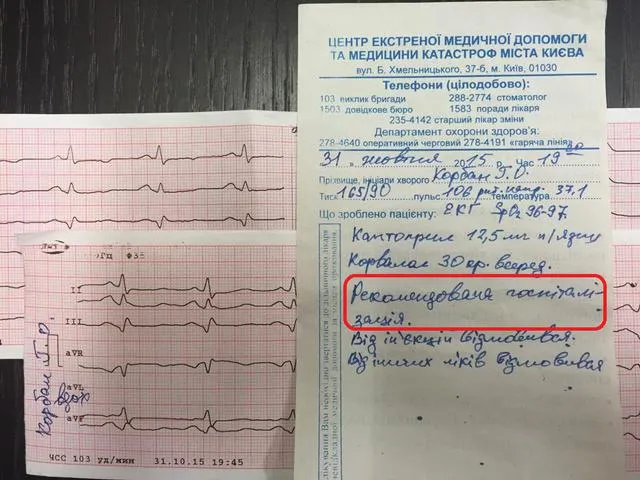 ЦЕНТР ЕКСТРЕНОЇ МЕДИЧНОЇ ДОПОМОГИ
ТА МЕДИЦИНИ КАТАСТРОФ МІСТА КИЄВА
вул. Б. Хмельницького, 37-б, м. Київ, 01030
Телефони (цілодобово):
103 виклик бригади 288-2774 стоматолог
1503 довідкове бюро 1583 поради лікаря
235-4142 старший лікар зміни
Департамент охорони здоров'я:
278-4640 оперативний черговий 278-4191 «гаряча лінія»
"31" жовтня 2015 р. Час 19 00
Прізвище, ініціали хворого Корбан Г.О.
Тиск 165/90 пульс 106 температура 37,1
Що зроблено пацієнту: ЕКГ SpO2 96-97.
Каптоприл 12,5 мг п/язик
Корвалол 30 кр. всеред.
Рекомендована госпіталі-
зація.
Від ін'єкцій відмовився.
Від інших ліків відмовився
II
III
aVR
aVL
aVF
Корбан Г.О.
вдох
ЧСС 103 уд/мин 31.10.15 19:45